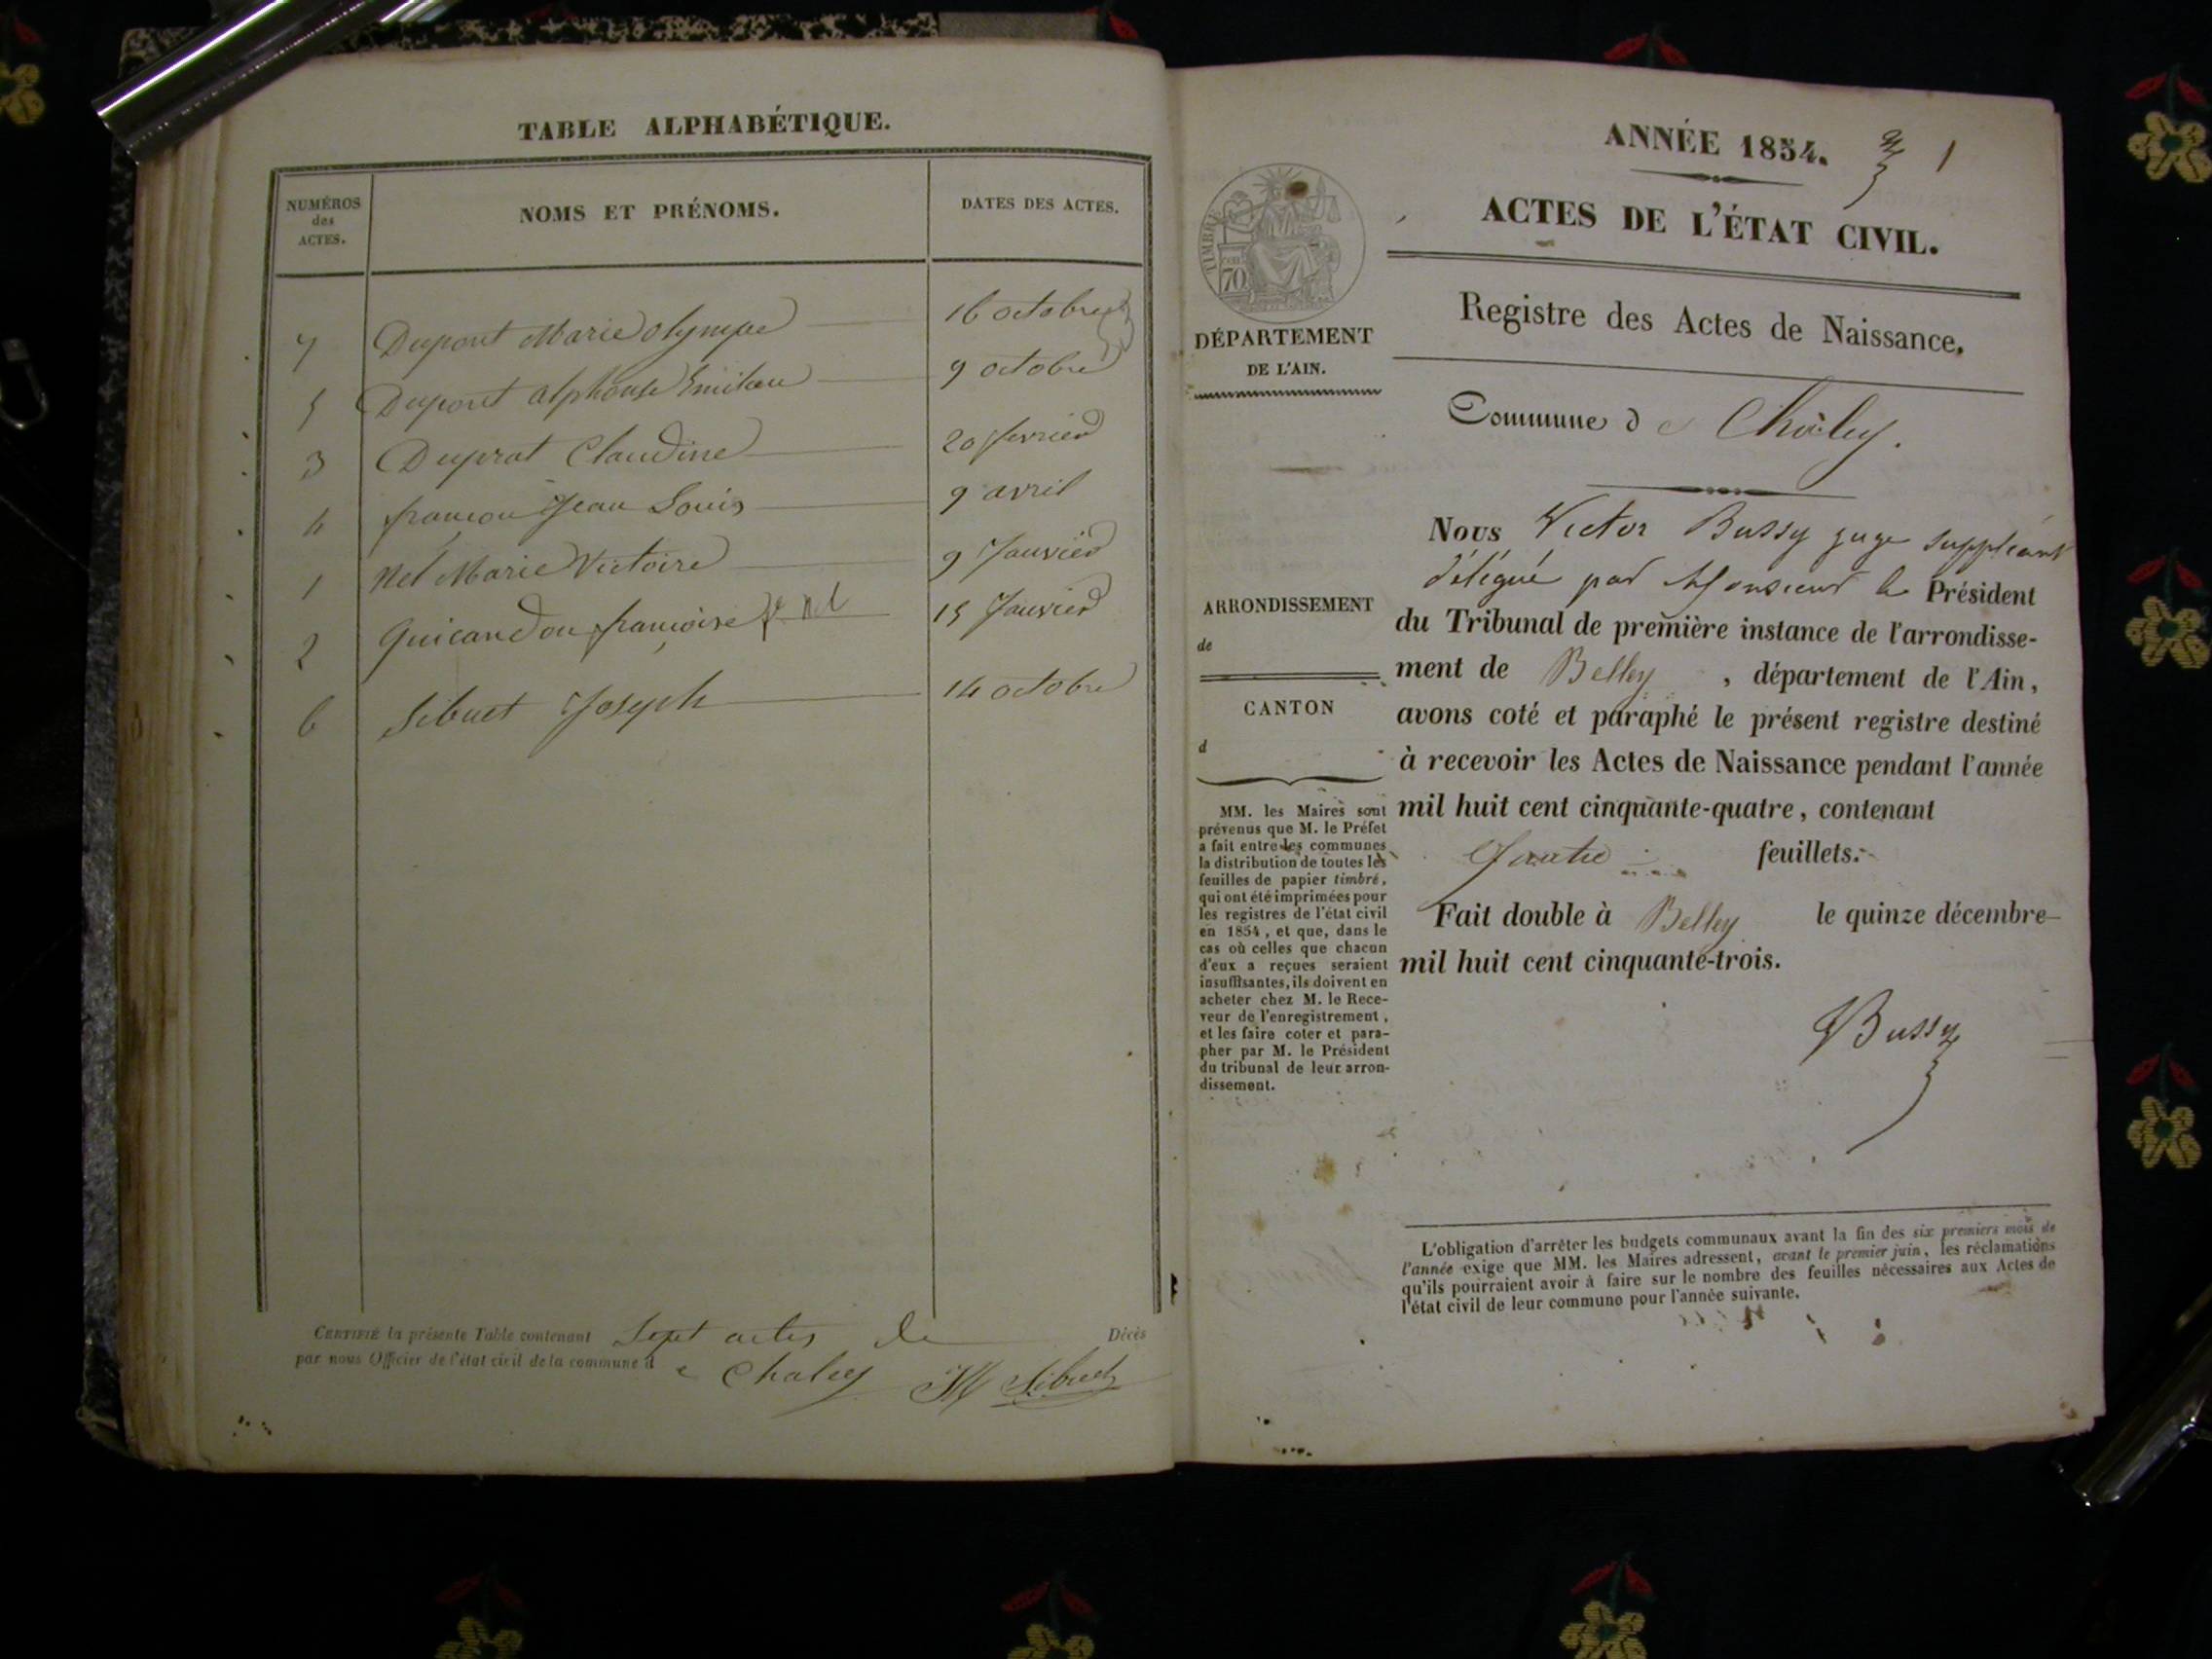 TABLE ALPHABÉTIQUE.
NUMÉROS
des
ACTES.
NOMS ET PRÉNOMS.
DATES DES ACTES.
7 Dupont Marie Olympe 16 octobre
5 Dupont Alphonse 9 octobre
3 Duprat Claudine 20 fevrier
4 françon Jean Louis 9 avril
1 Nel Marie Victoire 9 Janvier
2 Guicandon françoise f. nel 15 Janvier
6 Sibuet Joseph 14 octobre
CERTIFIÉ la présente Table contenant Sept actes de Décès
par nous Officier de l'état civil de la commune d e Chaley Sibuet
ANNÉE 1854. 1
ACTES DE L'ÉTAT CIVIL.
TIMBRE
70
Registre des Actes de Naissance.
DÉPARTEMENT
DE L'AIN.
Commune d e Châley.
ARRONDISSEMENT
de
CANTON
d
MM. les Maires sont
prévenus que M. le Préfet
a fait entre les communes
la distribution de toutes les
feuilles de papier timbré,
qui ont été imprimées pour
les registres de l'état civil
en 1854, et que, dans le
cas où celles que chacun
d'eux a reçues seraient
insuffisantes, ils doivent en
acheter chez M. le Rece-
veur de l'enregistrement,
et les faire coter et para-
pher par M. le Président
du tribunal de leur arron-
dissement.
Nous Victor Bussy juge suppléant
délégué par Monsieur le Président
du Tribunal de première instance de l'arrondisse-
ment de Belley, département de l'Ain,
avons coté et paraphé le présent registre destiné
à recevoir les Actes de Naissance pendant l'année
mil huit cent cinquante-quatre, contenant
quatre feuillets.
Fait double à Belley le quinze décembre
mil huit cent cinquante-trois.
VBussy
L'obligation d'arrêter les budgets communaux avant la fin des six premiers mois de
l'année exige que MM. les Maires adressent, avant le premier juin, les réclamations
qu'ils pourraient avoir à faire sur le nombre des feuilles nécessaires aux Actes de
l'état civil de leur commune pour l'année suivante.